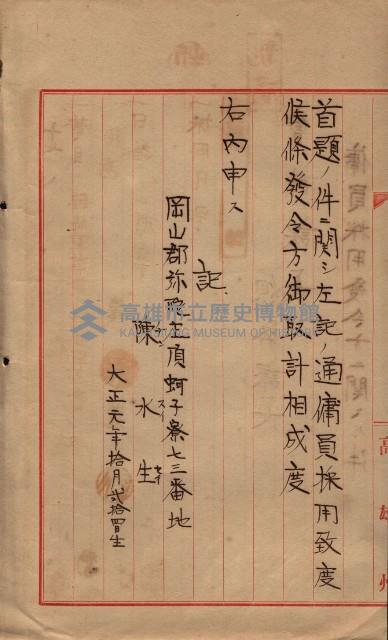 首題ノ件ニ関シ左記ノ通傭員採用致度
候條發令方御取計相成度
右内申ス
記
岡山郡弥陀庄頂蚵子寮七三番地
陳水生
大正元年拾月貳拾四日生
高雄州
高雄市立歷史博物館
KAOHSIUNG MUSEUM OF HISTORY